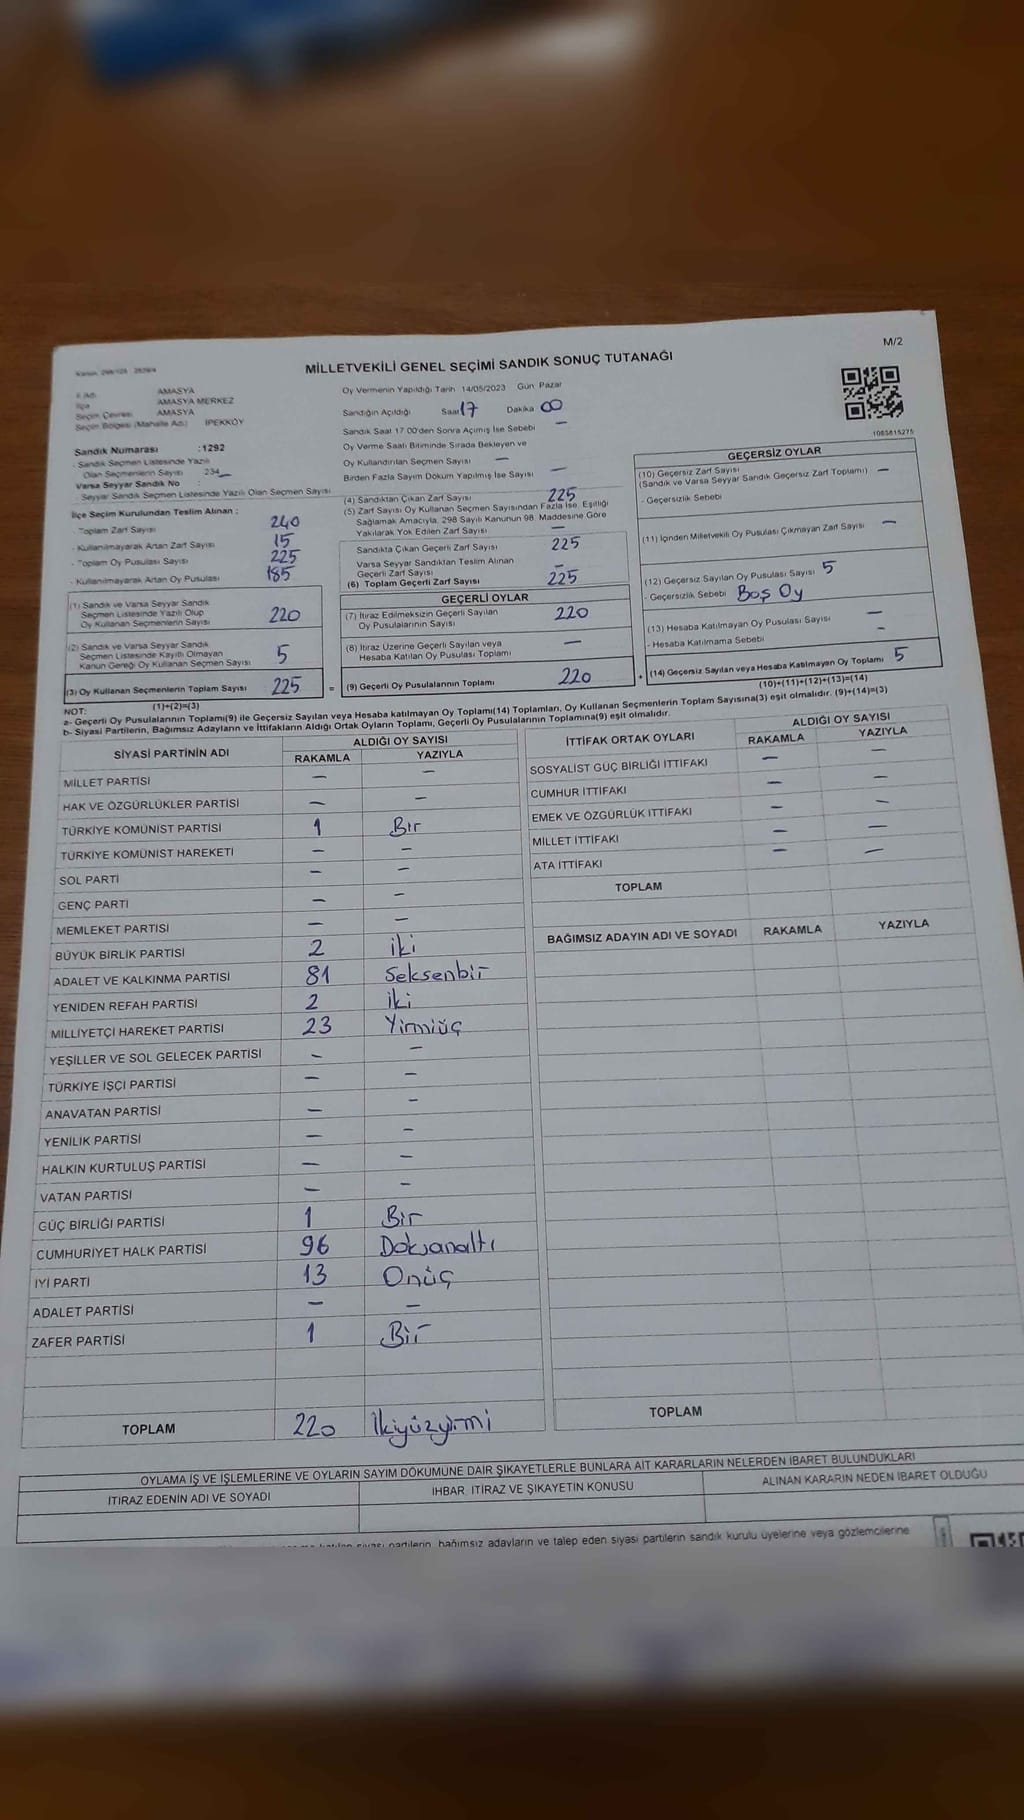 M/2
MİLLETVEKİLİ GENEL SEÇİMİ SANDIK SONUÇ TUTANAĞI
AMASYA
İlçe AMASYA MERKEZ
Seçim Çevresi AMASYA
Seçim Bölgesi (Mahalle Adı) İPEKKÖY
Sandık Numarası :1292
- Sandık Seçmen Listesinde Yazılı
Olan Seçmenlerin Sayısı 234
Varsa Seyyar Sandık No :
- Seyyar Sandık Seçmen Listesinde Yazılı Olan Seçmen Sayısı
İlçe Seçim Kurulundan Teslim Alınan :
- Toplam Zarf Sayısı 240
- Kullanılmayarak Artan Zarf Sayısı 15
- Toplam Oy Pusulası Sayısı 225
- Kullanılmayarak Artan Oy Pusulası 185
(1) Sandık ve Varsa Seyyar Sandık
Seçmen Listesinde Yazılı Olup
Oy Kullanan Seçmenlerin Sayısı 220
(2) Sandık ve Varsa Seyyar Sandık
Seçmen Listesinde Kayıtlı Olmayan
Kanun Gereği Oy Kullanan Seçmen Sayısı 5
(3) Oy Kullanan Seçmenlerin Toplam Sayısı 225 =
(1)+(2)=(3)
Oy Vermenin Yapıldığı Tarih 14/05/2023 Gün Pazar
Sandığın Açıldığı Saat 17 Dakika 00
Sandık Saat 17.00'den Sonra Açılmış İse Sebebi —
Oy Verme Saati Bitiminde Sırada Bekleyen ve
Oy Kullandırılan Seçmen Sayısı —
Birden Fazla Sayım Döküm Yapılmış İse Sayısı —
(4) Sandıktan Çıkan Zarf Sayısı 225
(5) Zarf Sayısı Oy Kullanan Seçmen Sayısından Fazla İse, Eşitliği
Sağlamak Amacıyla, 298 Sayılı Kanunun 98. Maddesine Göre
Yakılarak Yok Edilen Zarf Sayısı —
Sandıkta Çıkan Geçerli Zarf Sayısı 225
Varsa Seyyar Sandıktan Teslim Alınan
Geçerli Zarf Sayısı —
(6) Toplam Geçerli Zarf Sayısı 225
GEÇERLİ OYLAR
(7) İtiraz Edilmeksizin Geçerli Sayılan
Oy Pusulalarının Sayısı 220
(8) İtiraz Üzerine Geçerli Sayılan veya
Hesaba Katılan Oy Pusulası Toplamı —
(9) Geçerli Oy Pusulalarının Toplamı 220 +
1085815275
GEÇERSİZ OYLAR
(10) Geçersiz Zarf Sayısı
(Sandık ve Varsa Seyyar Sandık Geçersiz Zarf Toplamı) —
- Geçersizlik Sebebi
(11) İçinden Milletvekili Oy Pusulası Çıkmayan Zarf Sayısı —
(12) Geçersiz Sayılan Oy Pusulası Sayısı 5
- Geçersizlik Sebebi Boş Oy
(13) Hesaba Katılmayan Oy Pusulası Sayısı —
- Hesaba Katılmama Sebebi —
(14) Geçersiz Sayılan veya Hesaba Katılmayan Oy Toplamı 5
(10)+(11)+(12)+(13)=(14)
NOT:
a- Geçerli Oy Pusulalarının Toplamı(9) ile Geçersiz Sayılan veya Hesaba katılmayan Oy Toplamı(14) Toplamları, Oy Kullanan Seçmenlerin Toplam Sayısına(3) eşit olmalıdır. (9)+(14)=(3)
b- Siyasi Partilerin, Bağımsız Adayların ve İttifakların Aldığı Ortak Oyların Toplamı, Geçerli Oy Pusulalarının Toplamına(9) eşit olmalıdır.
SİYASİ PARTİNİN ADI ALDIĞI OY SAYISI
RAKAMLA YAZIYLA
MİLLET PARTİSİ — —
HAK VE ÖZGÜRLÜKLER PARTİSİ — —
TÜRKİYE KOMÜNİST PARTİSİ 1 Bir
TÜRKİYE KOMÜNİST HAREKETİ — —
SOL PARTİ — —
GENÇ PARTİ — —
MEMLEKET PARTİSİ — —
BÜYÜK BİRLİK PARTİSİ 2 iki
ADALET VE KALKINMA PARTİSİ 81 Seksenbir
YENİDEN REFAH PARTİSİ 2 iki
MİLLİYETÇİ HAREKET PARTİSİ 23 Yirmiüç
YEŞİLLER VE SOL GELECEK PARTİSİ — —
TÜRKİYE İŞÇİ PARTİSİ — —
ANAVATAN PARTİSİ — —
YENİLİK PARTİSİ — —
HALKIN KURTULUŞ PARTİSİ — —
VATAN PARTİSİ — —
GÜÇ BİRLİĞİ PARTİSİ 1 Bir
CUMHURİYET HALK PARTİSİ 96 Doksanaltı
İYİ PARTİ 13 Onüç
ADALET PARTİSİ — —
ZAFER PARTİSİ 1 Bir
TOPLAM 220 İkiyüzyirmi
İTTİFAK ORTAK OYLARI ALDIĞI OY SAYISI
RAKAMLA YAZIYLA
SOSYALİST GÜÇ BİRLİĞİ İTTİFAKI — —
CUMHUR İTTİFAKI — —
EMEK VE ÖZGÜRLÜK İTTİFAKI — —
MİLLET İTTİFAKI — —
ATA İTTİFAKI — —
TOPLAM
BAĞIMSIZ ADAYIN ADI VE SOYADI RAKAMLA YAZIYLA
TOPLAM
OYLAMA İŞ VE İŞLEMLERİNE VE OYLARIN SAYIM DÖKÜMÜNE DAİR ŞİKAYETLERLE BUNLARA AİT KARARLARIN NELERDEN İBARET BULUNDUKLARI
İTİRAZ EDENİN ADI VE SOYADI İHBAR, İTİRAZ VE ŞİKAYETİN KONUSU ALINAN KARARIN NEDEN İBARET OLDUĞU
siyasi partilerin, bağımsız adayların ve talep eden siyasi partilerin sandık kurulu üyelerine veya gözlemcilerine